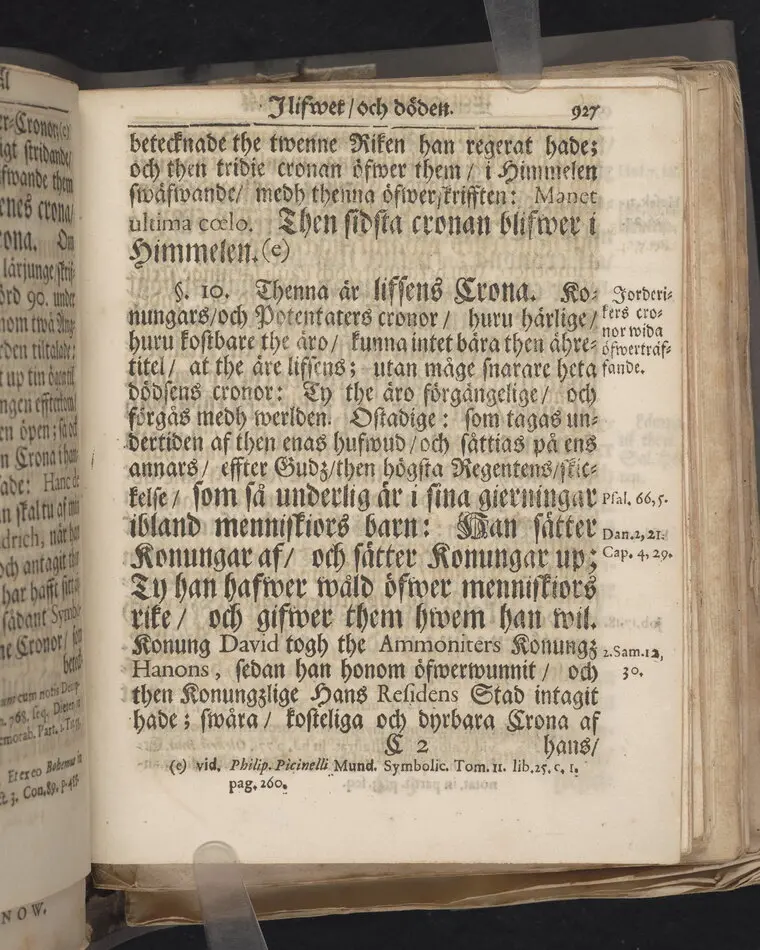 Jlifwet / och döden. 927
betecknade the twenne Riken han regerat hade;
och then tridie cronan öfwer them / i Himmelen
swäfwande / medh thenna öfwerskrifften: Manet
ultima cœlo. Then sidsta cronan blifwer i
Himmelen. (e)
§. 10. Thenna är lifsens Crona. Ko-
nungars / och Potentaters cronor / huru härlige /
huru kostbare the äro / kunna intet bära then ähre-
titel / at the äre lifsens; utan måge snarare heta
dödsens cronor: Ty the äro förgängelige / och
förgås medh werlden. Ostadige: som tagas un-
dertiden af then enas hufwud / och sättias på ens
annars / effter Gudz / then högsta Regentens / skic-
kelse / som så underlig är i sina gierningar
ibland menniskiors barn: Han sätter
Konungar af / och sätter Konungar up;
Ty han hafwer wåld öfwer menniskiors
rike / och gifwer them hwem han wil.
Konung David togh the Ammoniters Konungz
Hanons, sedan han honom öfwerwunnit / och
then Konungzlige Hans Residens Stad intagit
hade; swåra / kosteliga och dyrbara Crona af
C 2 hans /
(e) vid. Philip. Picinelli Mund. Symbolic. Tom. 11. lib. 25. c. 1.
pag. 260.
Jorderi-
kers cro-
nor wida
öfwerträf-
fande.
Psal. 66, 5.
Dan. 2, 21.
Cap. 4, 29.
2. Sam. 12,
30.